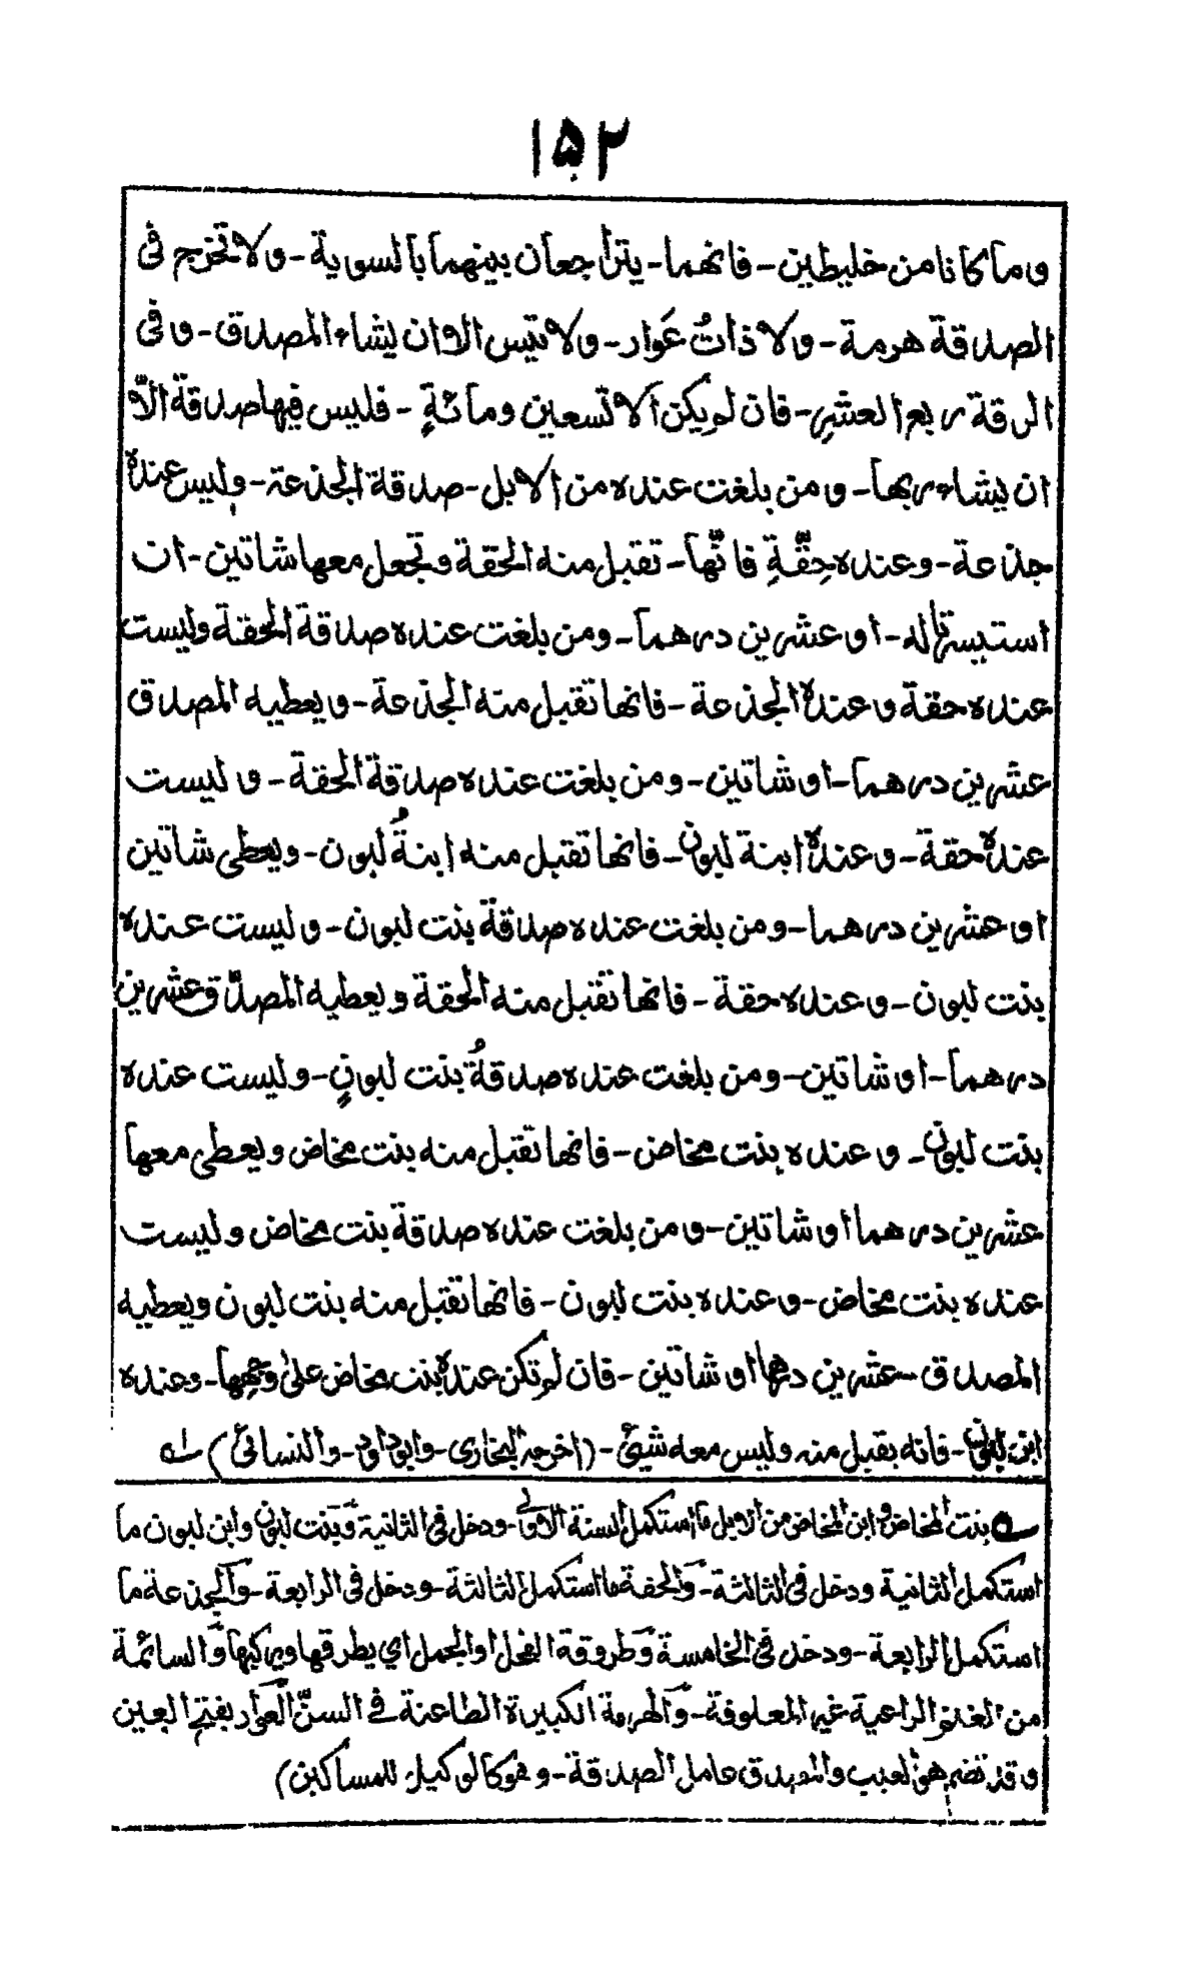 ۱۵۲
وما كانا من خليطين - فانهما - يتراجعان بينهما بالسوية - ولا تخرج فى
الصدقة هرمة - ولا ذاتُ عَوار - ولا تيس الا ان يشاء المصدق - وفى
الرقة ربع العشرِ - فان لم يكن الا تسعين ومائةٍ - فليس فيها صدقة الّا
ان يشاء ربها - ومن بلغت عنده من الابل - صدقة الجذعة - وليس عنده
جذعة - وعنده حِقّةٍ فانّها - تقبل منه الحقة وتجعل معها شاتين - ان
استيسرتا له - او عشرين درهما - ومن بلغت عنده صدقة الحقة وليست
عنده حقة وعنده الجذعة - فانها تقبل منه الجذعة - ويعطيه المصدق
عشرين درهما - او شاتين - ومن بلغت عنده صدقة الحقة - وليست
عنده حقة - وعنده ابنة لبون - فانها تقبل منه ابنةُ لبون - ويعطى شاتين
او عشرين درهما - ومن بلغت عنده صدقة بنت لبون - وليست عنده
بنت لبون - وعنده حقة - فانها تقبل منه الحقة ويعطيه المصدّق عشرين
درهما - او شاتين - ومن بلغت عنده صدقةُ بنت لبونٍ - وليست عنده
بنت لبون - وعنده بنت مخاض - فانها تقبل منه بنت مخاض ويعطى معها
عشرين درهما او شاتين - ومن بلغت عنده صدقة بنت مخاض وليست
عنده بنت مخاض - وعنده بنت لبون - فانها تقبل منه بنت لبون ويعطيه
المصدق - عشرين درهما او شاتين - فان لم تكن عنده بنت مخاض على وجهها - وعنده
ابن لبون - فانه يقبل منه وليس معه شيئ - (اخرجه البخارى - وابوداود - والنسائى) ـه
ـه بنت المخاض و ابن المخاض من الابل ما استكمل السنة الاولى - ودخل فى الثانية وبنت لبون وابن لبون ما
استكمل الثانية ودخل فى الثالثة - والحقة ما استكمل الثالثة - ودخل فى الرابعة - والجذعة ما
استكمل الرابعة - ودخل فى الخامسة وطروقة الفحل او الجمل اي يطرقها ويركبها والسائمة
من الغنم الراعية غير المعلوفة - والهرمة الكبيرة الطاعنة في السنّ العوار بفتح العين
وقد تضم هو العيب والمصدق عامل الصدقة - وهو كالوكيل للمساكين)